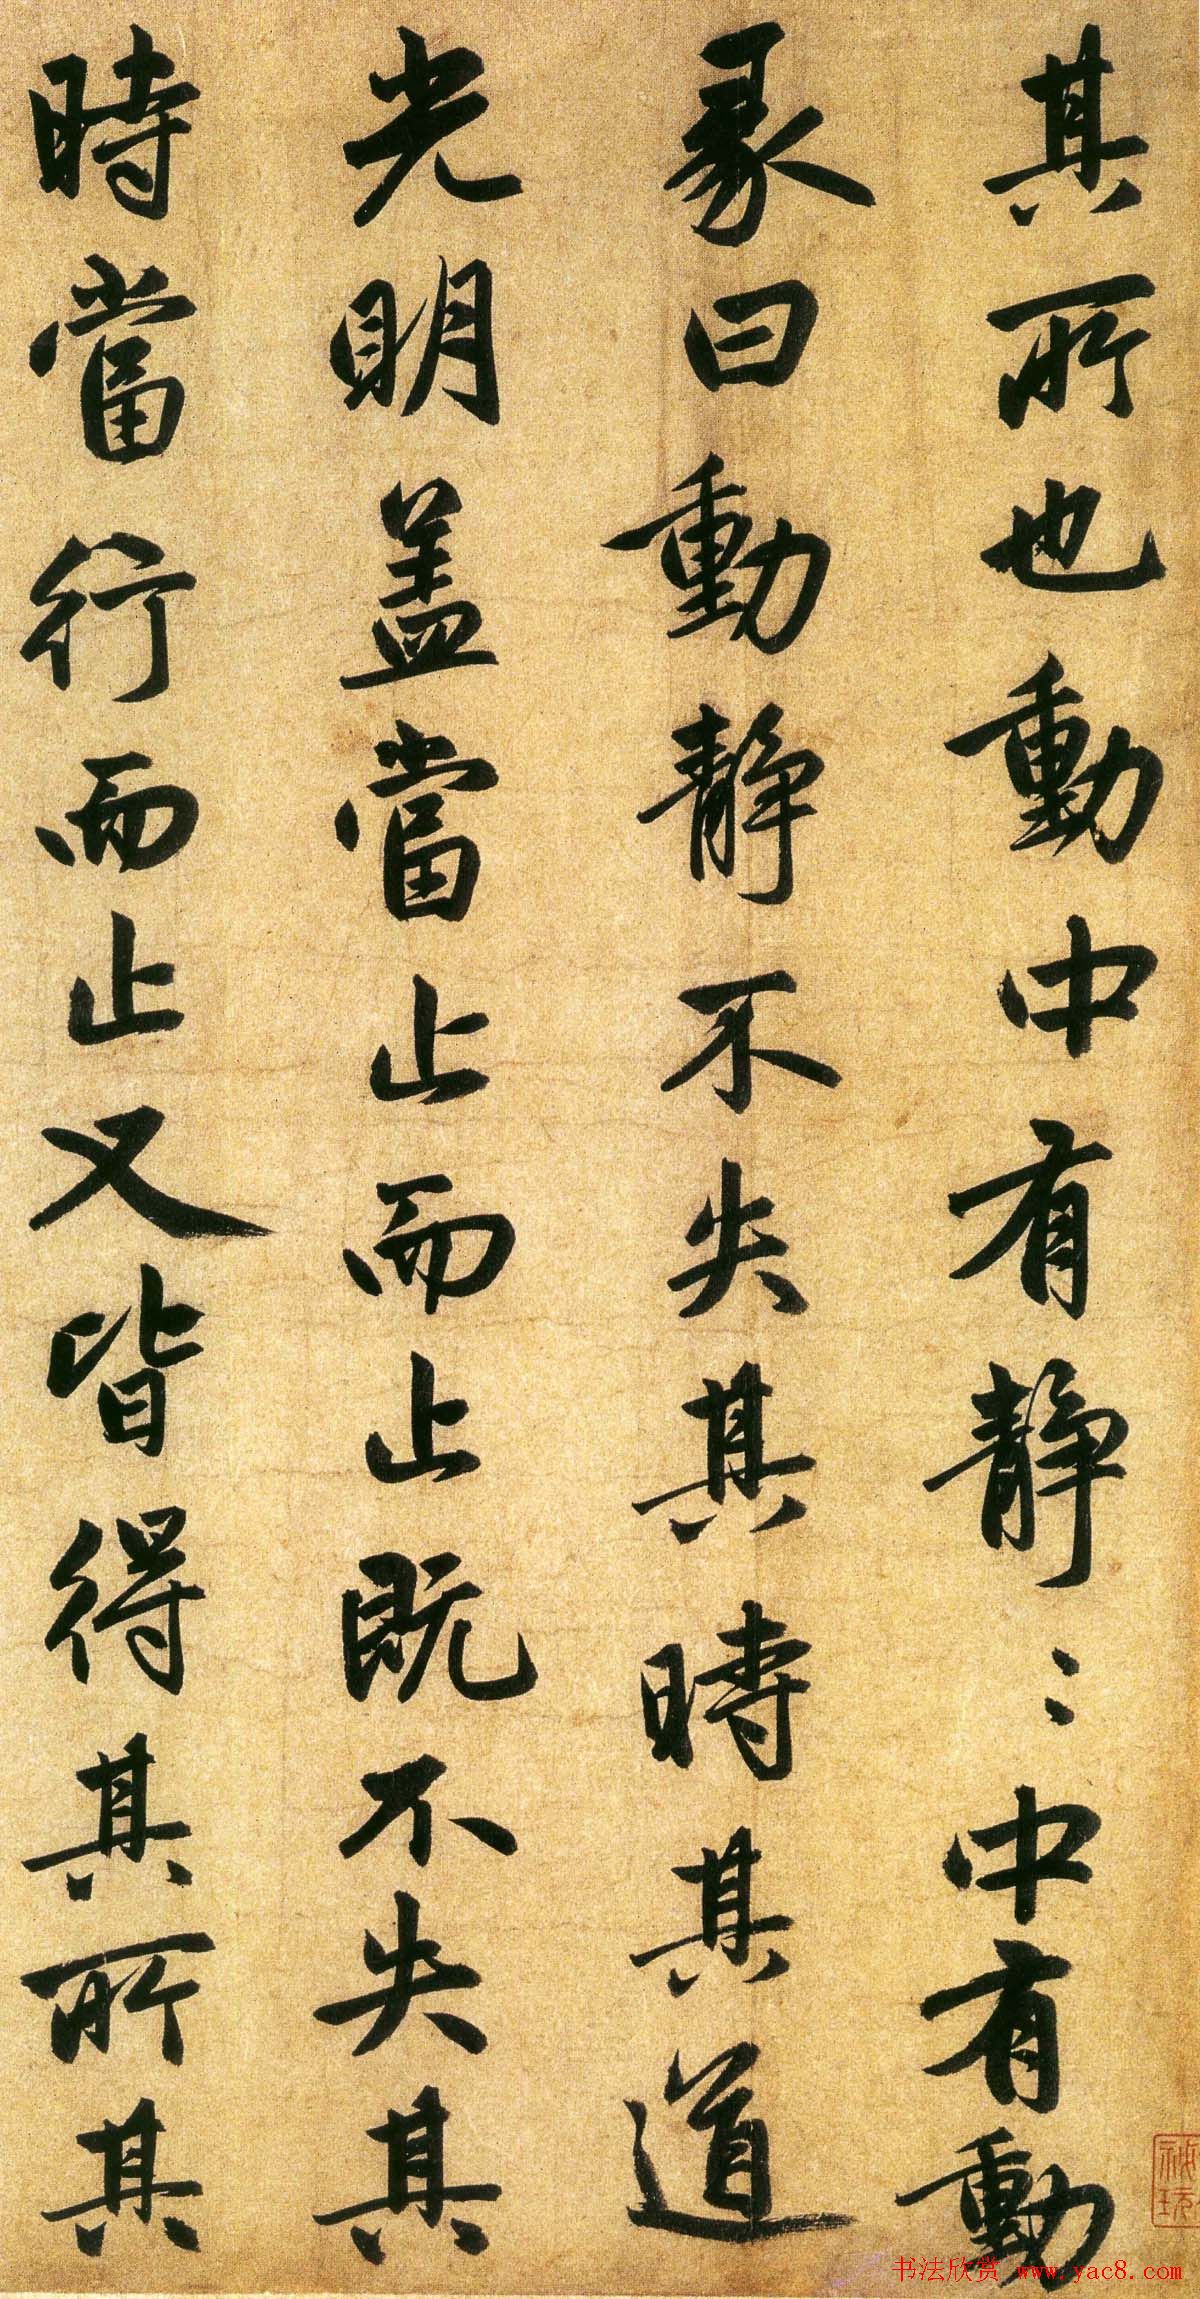 其所也動中有静〻中有動
彖曰動静不失其時其道
光明盖當止而止既不失其
時當行而止又皆得其所其
祕玩
书法欣赏 www.yac8.com